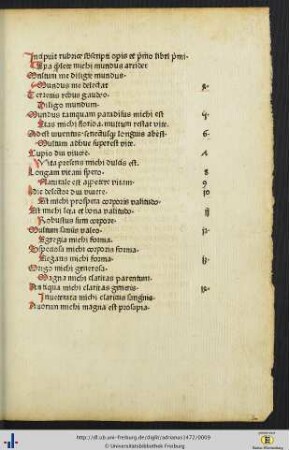 Incipiũt rubrice sb̃scripti opis et p̃mo libri p̃mi.
Ipa q̃lere michi mundus arridet
Multum me diligit mundus.
Mundus me delectat 2.
Terrenis rebus gaudeo.
Diligo mundum.
Mundus tamquam paradisus michi est 4.
Etas michi florida. multum restat vite.
Adest iuuentus. senectusq; longius abest. 6.
Multum adhuc superest vite.
Cupio diu viuere. A
Vita presens michi dulcis est.
Longam vitam spero. 8
Naturale est appetere vitam. 9
Me delectat diu viuere. 10
Est michi prospera corporis valitudo.
Est michi leta et bona valitudo. 11
Robustus sum corpore.
Multum sanus valeo. 12.
Egregia michi forma.
Speciosa michi corporis forma.
Elegans michi forma. 13
Origo michi generosa.
Magna michi claritas parentum.
Antiqua michi claritas generis. 14.
Inueterata michi claritas sanguinis.
Auorum michi magna est prosapia.
http://dl.ub.uni-freiburg.de/diglit/adrianus1472/0009
© Universitätsbibliothek Freiburg